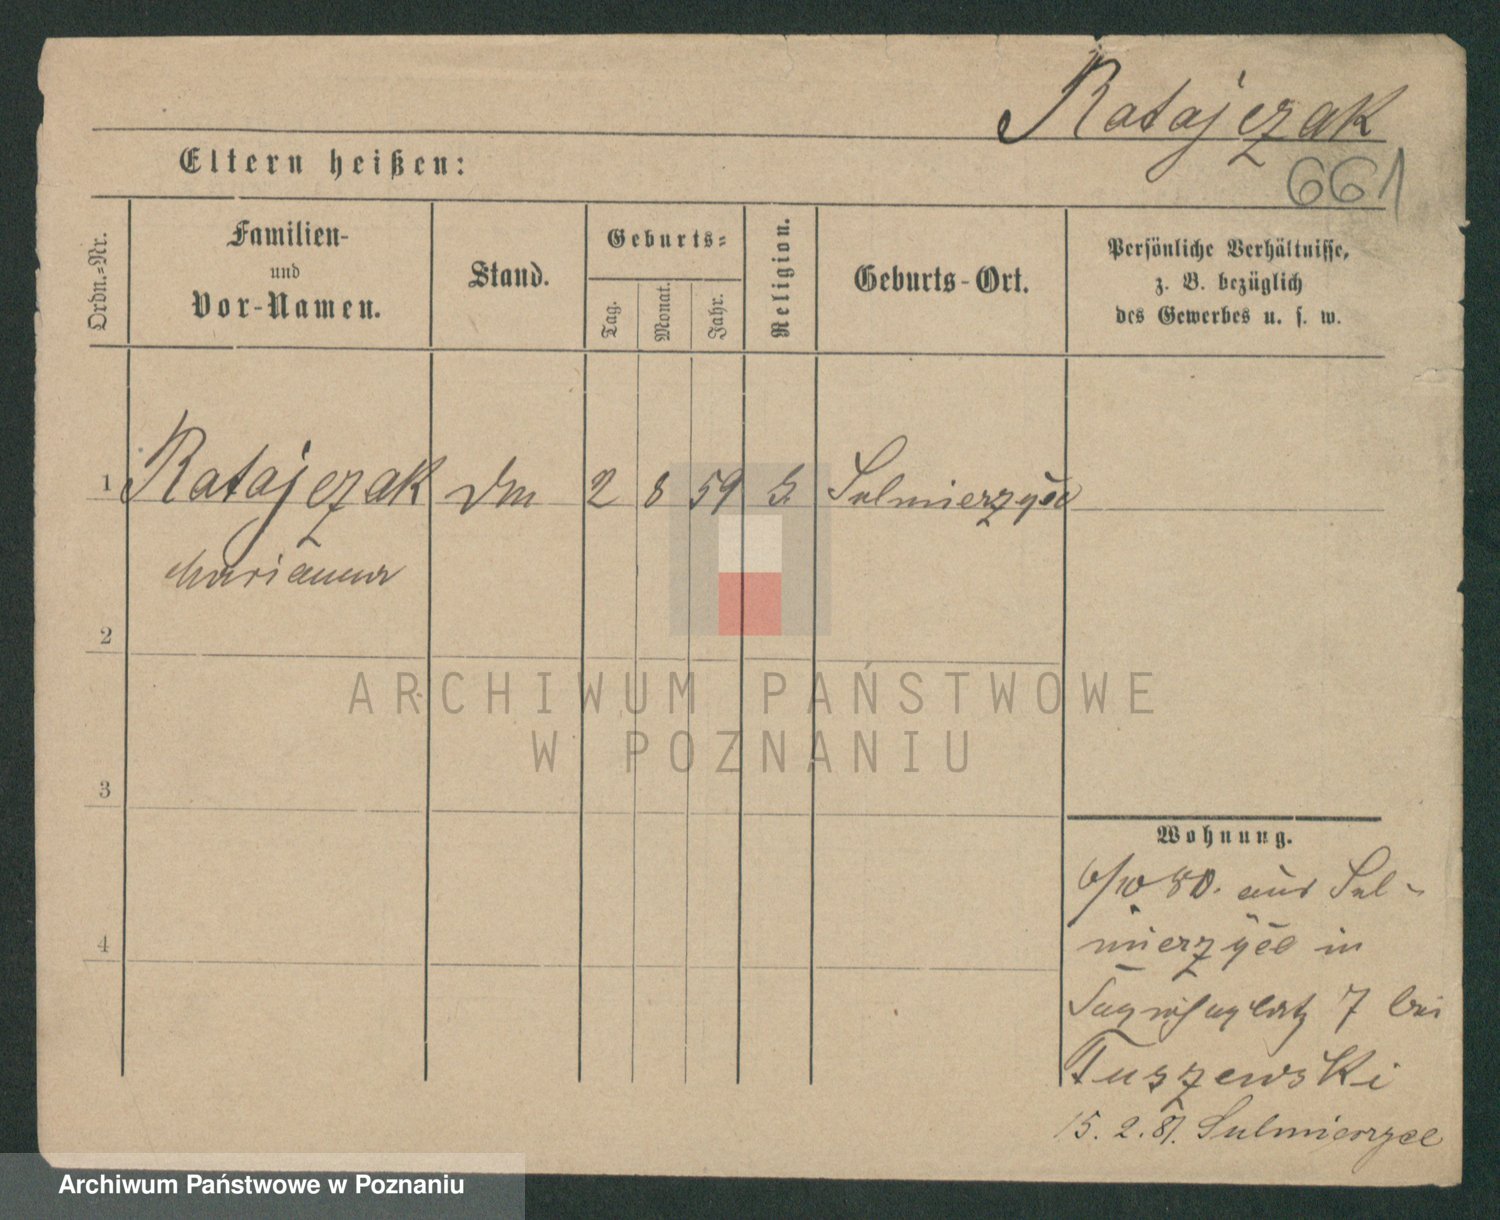 Ratajczak
661
Eltern heißen:
Ordn.-Nr.
Familien-
und
Vor-Namen.
Stand.
Geburts-
Tag.
Monat.
Jahr.
Religion.
Geburts-Ort.
Persönliche Verhältnisse,
z. B. bezüglich
des Gewerbes u. s. w.
1 Ratajczak 2 8 59 Sulmierzyce
Marianna
2
3
4
ARCHIWUM PAŃSTWOWE
W POZNANIU
Wohnung.
6/10 80. aus Sul-
mierzyce in
7 bei
Tuszewski
15. 2. 81. Sulmierzyce
Archiwum Państwowe w Poznaniu